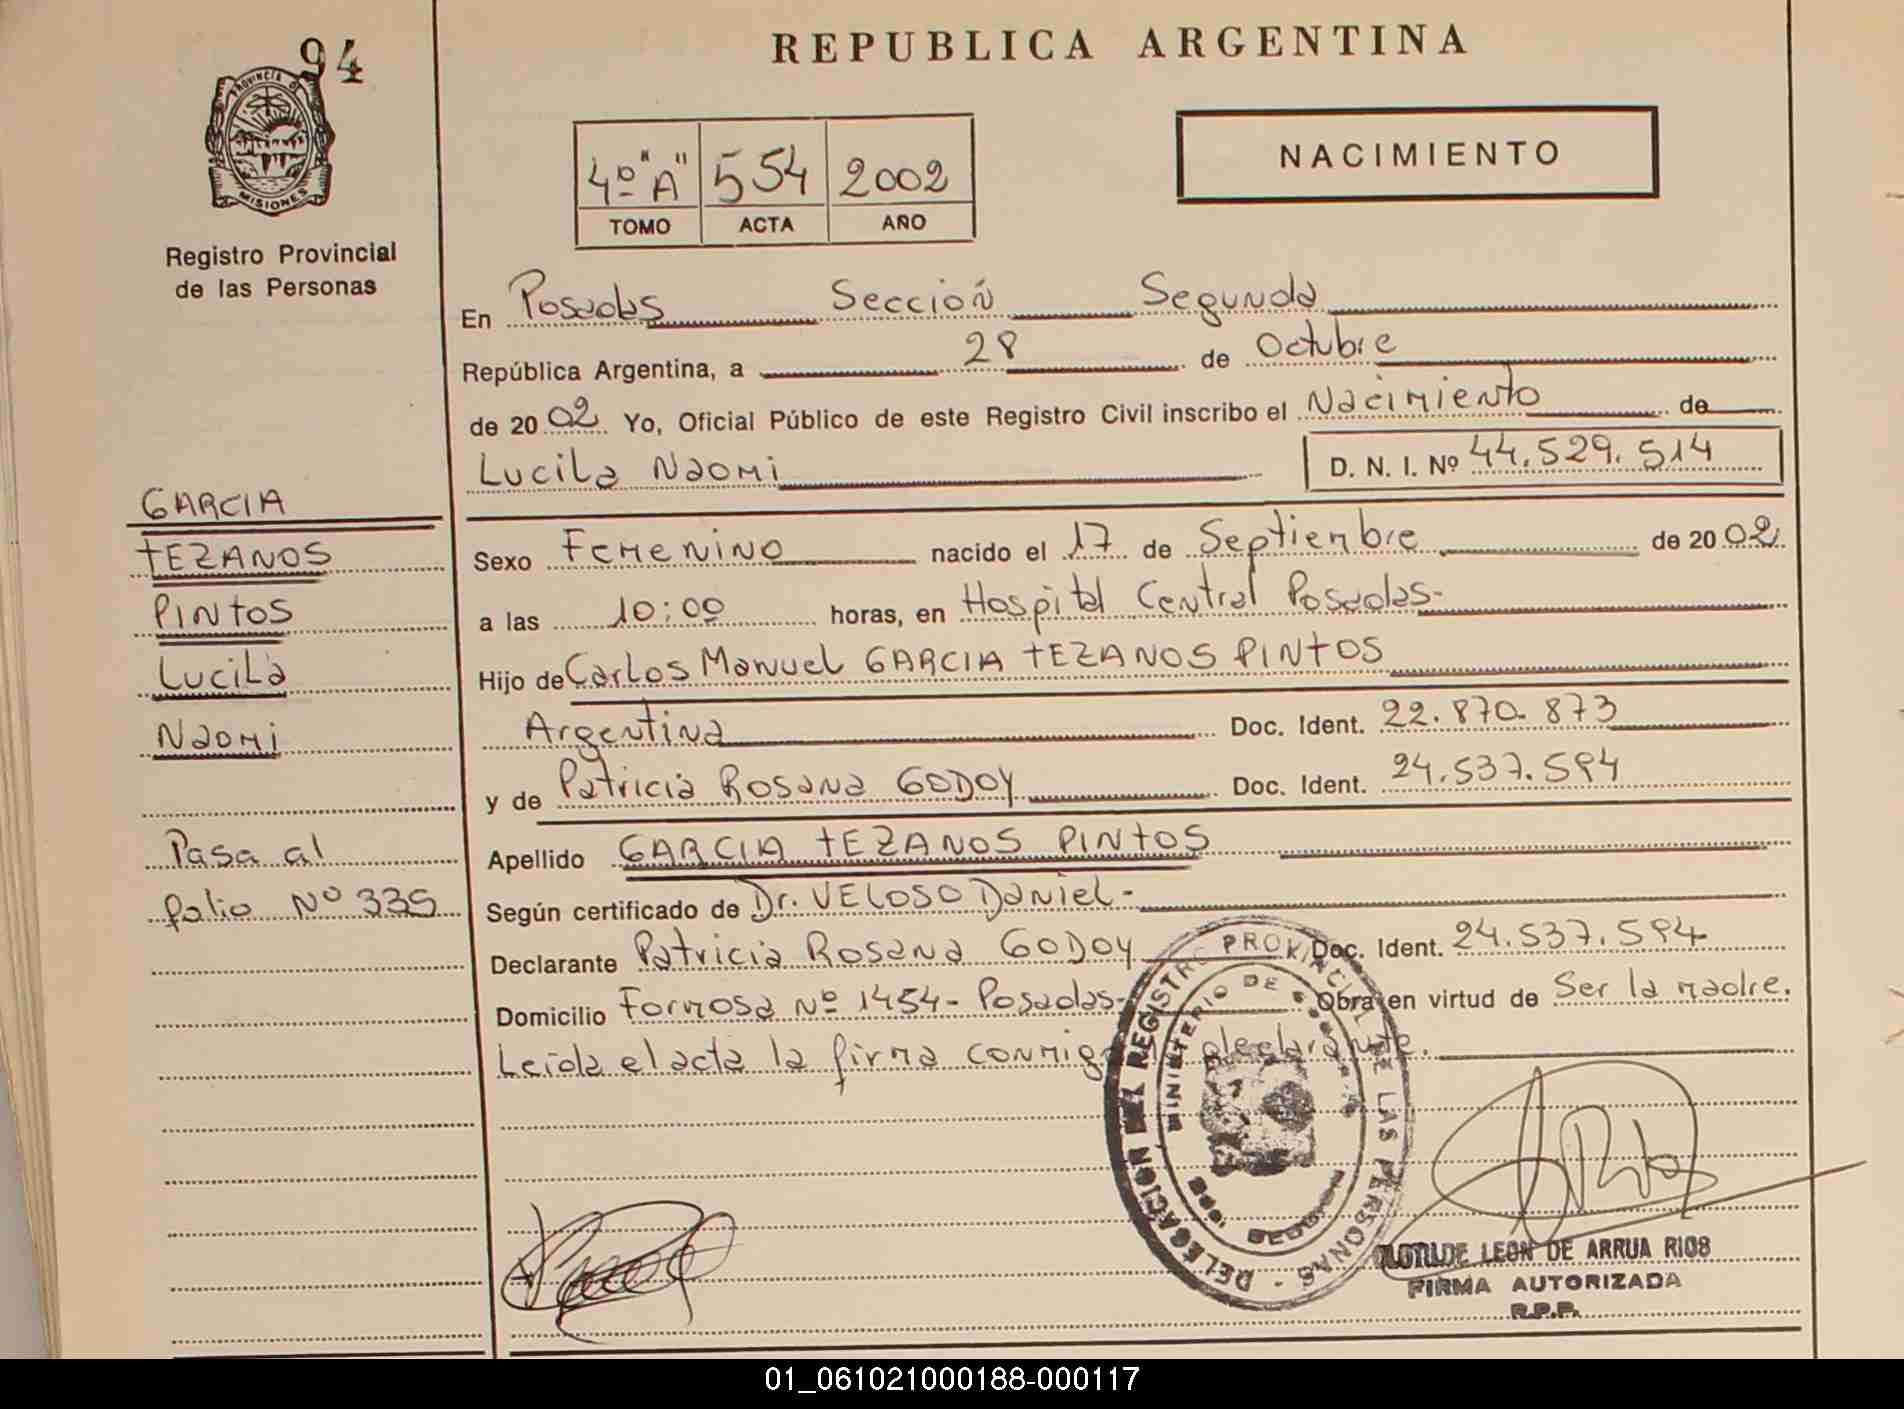 94
REPUBLICA ARGENTINA
PROVINCIA DE
MISIONES
Registro Provincial
de las Personas
4º "A" 554 2002
TOMO ACTA AÑO
NACIMIENTO
En Posadas Sección Segunda
República Argentina, a 28 de Octubre
de 2002 Yo, Oficial Público de este Registro Civil inscribo el Nacimiento de
Lucila Naomi D. N. I. Nº 44.529.514
GARCIA
TEZANOS
PINTOS
Lucila
Naomi
Pasa al
folio Nº 335
Sexo Femenino nacido el 17 de Septiembre de 2002
a las 10:00 horas, en Hospital Central Posadas-
Hijo de Carlos Manuel GARCIA TEZANOS PINTOS
Argentina Doc. Ident. 22.870.873
y de Patricia Rosana GODOY Doc. Ident. 24.537.594
Apellido GARCIA TEZANOS PINTOS
Según certificado de Dr. VELOSO Daniel-
Declarante Patricia Rosana GODOY Doc. Ident. 24.537.594
Domicilio Formosa Nº 1454- Posadas- Obra en virtud de Ser la madre.
Leida el acta la firma conmigo la declarante.
DELEGACION DEL REGISTRO PROVINCIAL DE LAS PERSONAS
MINISTERIO DE
CLOTILDE LEON DE ARRUA RIOS
FIRMA AUTORIZADA
R.P.P.
01_061021000188-000117